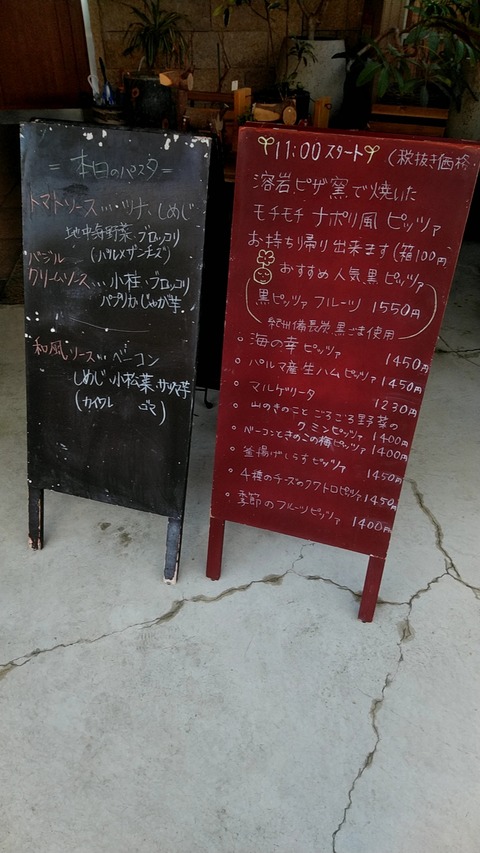 = 本日のパスタ =
トマトソース・・・ツナ、しめじ
地中海野菜・ブロッコリ
(パルメザンチーズ)
バジル
クリームソース・・・小柱・ブロッコリ
パプリカ・じゃが芋
和風ソース・・・ベーコン
しめじ 小松菜 サツマ芋
(カイワレ ゴマ)
11:00 スタート (税抜き価格
溶岩ピザ窯で焼いた
モチモチ ナポリ風 ピッツァ
お持ち帰り出来ます(箱100円
おすすめ人気黒ピッツァ
黒ピッツァ フルーツ 1550円
紀州備長炭 黒ごま使用
◦ 海の幸ピッツァ 1450円
◦ パルマ産生ハムピッツァ 1450円
◦ マルゲリータ 1230円
◦ 山のきのこと ごろごろ野菜の
クミンピッツァ 1400円
◦ ベーコンときのこの梅ピッツァ 1400円
◦ 釜揚げしらすピッツァ 1450円
◦ 4種のチーズのクワトロピッツァ 1450円
◦ 季節のフルーツピッツァ 1400円